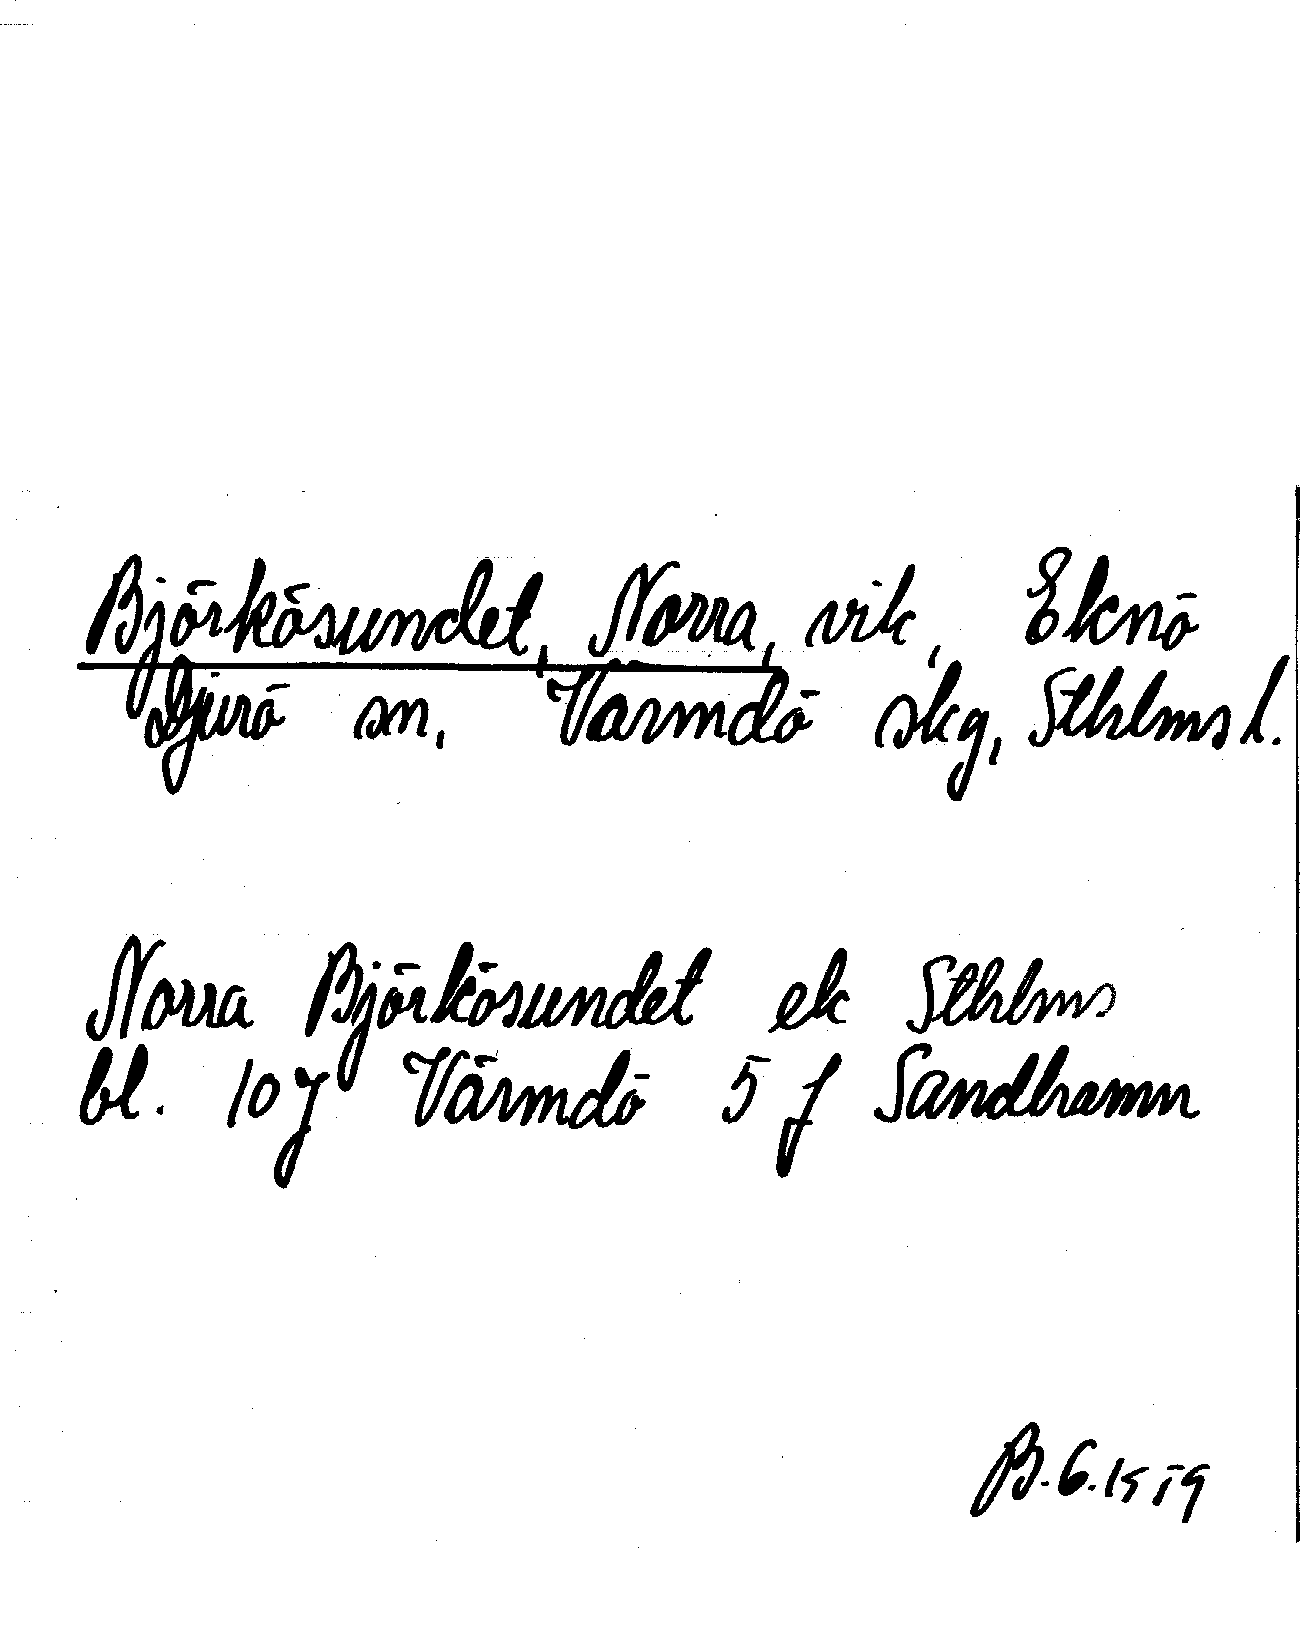 Björkösundet, Norra, vik, Eknö
Djurö sn, Värmdö skg, Sthlms l.
Norra Björkösundet ek Sthlms
bl. 107 Värmdö 5 f Sandhamn